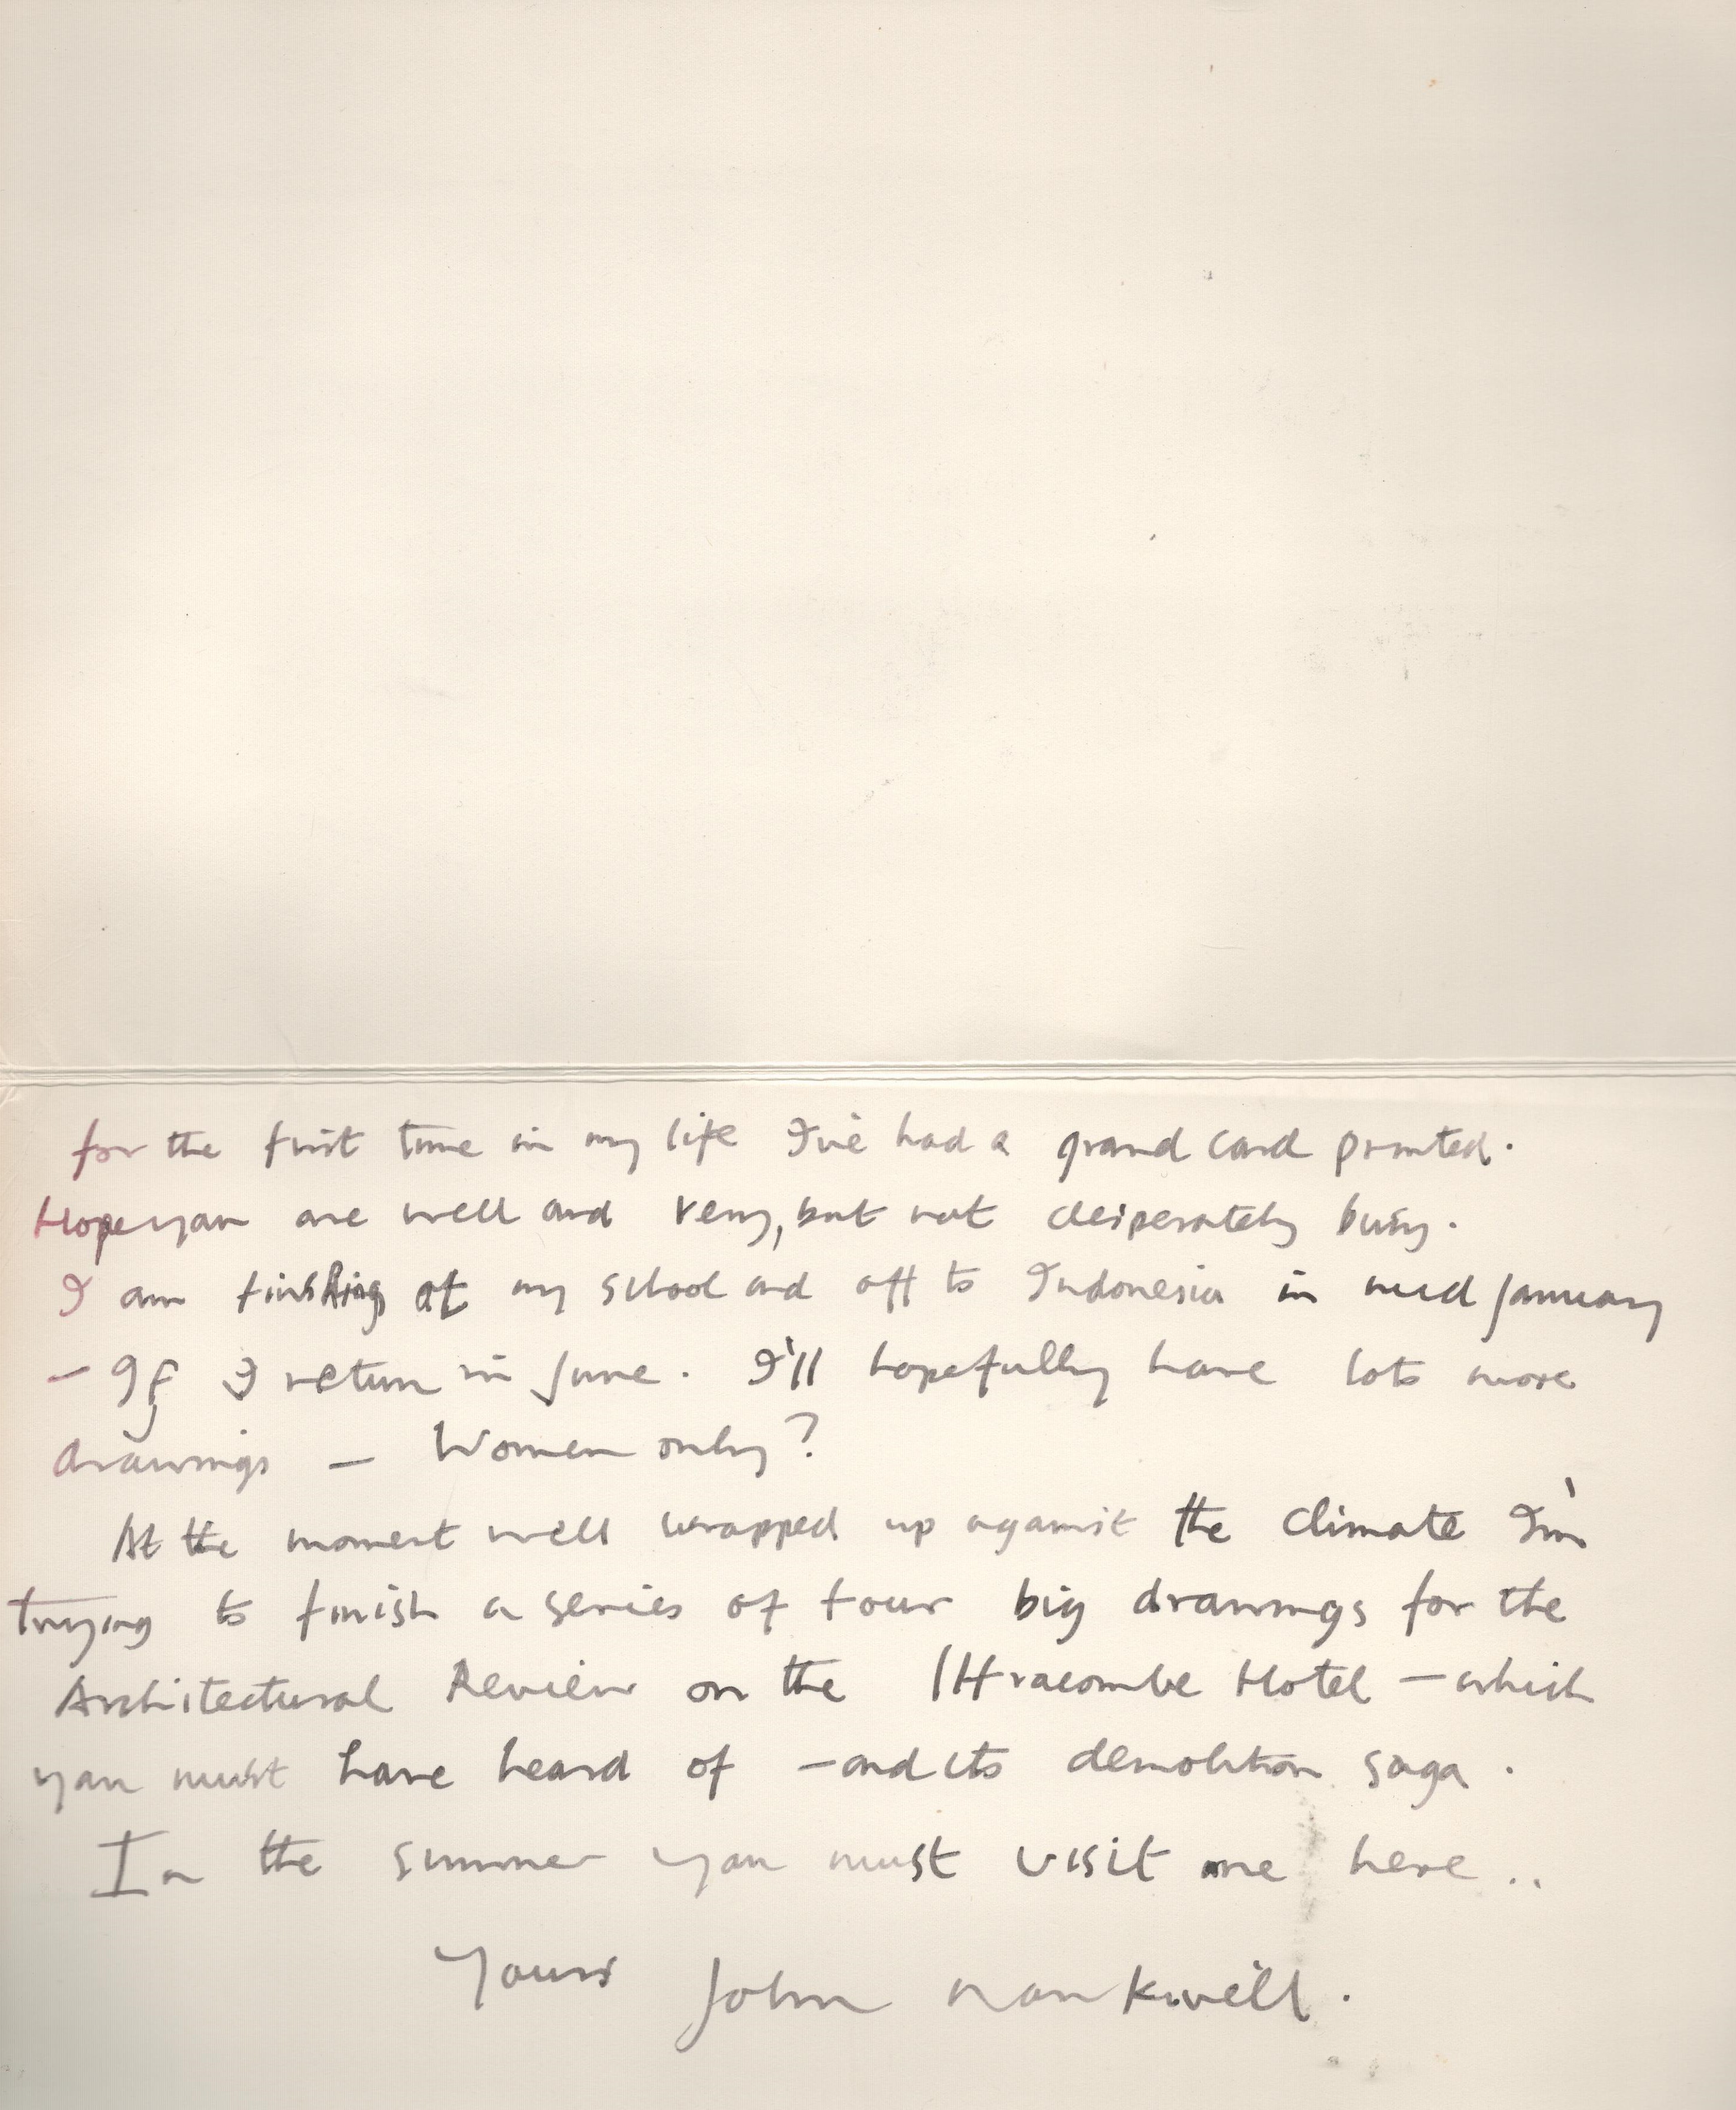 for the first time in my life I've had a grand card printed.
Hope you are well and very, but not desperately busy.
I am finishing at my school and off to Indonesia in mid January
— If I return in June. I'll hopefully have lots more
drawings — Women only?
At the moment well wrapped up against the climate I'm
trying to finish a series of four big drawings for the
Architectural Review on the Ilfracombe Hotel — which
you must have heard of — and its demolition saga.
In the summer you must visit me here ..
Yours John Nankivell.